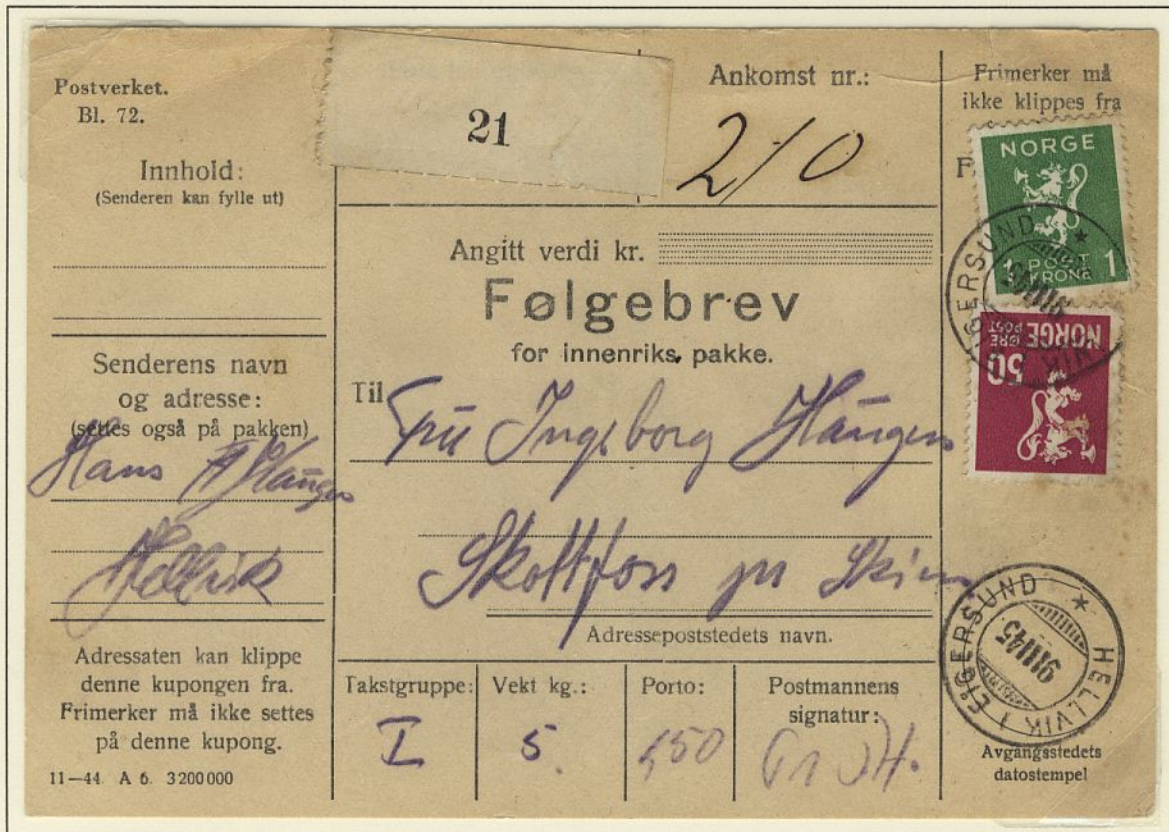 Postverket.
Bl. 72.
Innhold:
(Senderen kan fylle ut)
Senderens navn
og adresse:
(settes også på pakken)
Hans Haugen
Hellvik
Adressaten kan klippe
denne kupongen fra.
Frimerker må ikke settes
på denne kupong.
11—44. A 6. 3200000
21
Ankomst nr.:
210
Angitt verdi kr.
Følgebrev
for innenriks pakke.
Til
Fru Ingeborg Haugen
Skotfoss pr Skien
Adressepoststedets navn.
Takstgruppe:
I
Vekt kg.:
5
Porto:
150
Postmannens
signatur:
Frimerker må
ikke klippes fra
F
NORGE
1 POST 1
KRONE
EIGERSUND *
NORGE
ØRE
POST
50
HELLVIK I EIGERSUND *
9 III 45
Avgangsstedets
datostempel